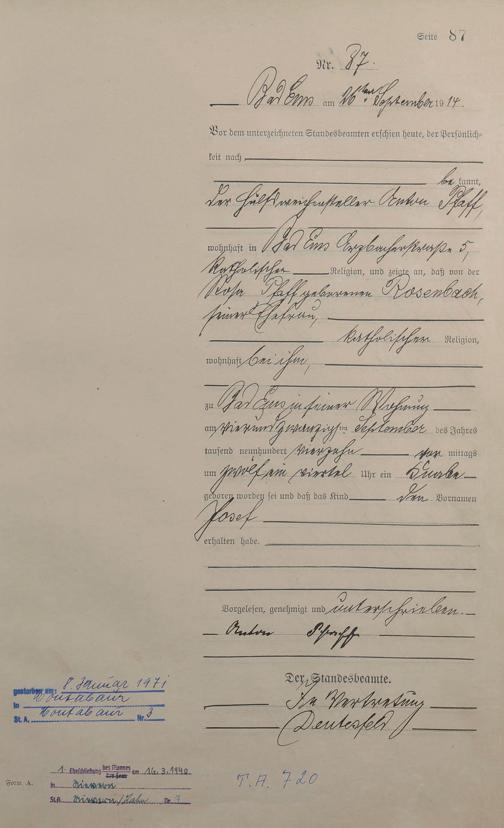 Seite 87
Nr. 87.
Bad Ems am 26ten September 1914.
Vor dem unterzeichneten Standesbeamten erschien heute, der Persönlich-
keit nach
be kannt,
der Hülfsweichensteller Anton Pfaff,
wohnhaft in Bad Ems Arzbacherstraße 5,
katholischer Religion, und zeigte an, daß von der
Rosa Pfaff geborenen Rosenbach,
seiner Ehefrau,
katholischer Religion,
wohnhaft bei ihm,
zu Bad Ems in seiner Wohnung
am vierundzwanzigsten September des Jahres
tausend neunhundert vierzehn vor mittags
um zwölf ein viertel Uhr ein Knabe
geboren worden sei und daß das Kind den Vornamen
Josef
erhalten habe.
Vorgelesen, genehmigt und unterschrieben.
Anton Pfaff
Der Standesbeamte.
In Vertretung
gestorben am: 8. Januar 1971
in Montabaur
St. A. Montabaur Nr. 3
1. Eheschließung des Mannes am 16.3.1940
in
StA. /Lahn Nr.
Form A.
T.A. 720